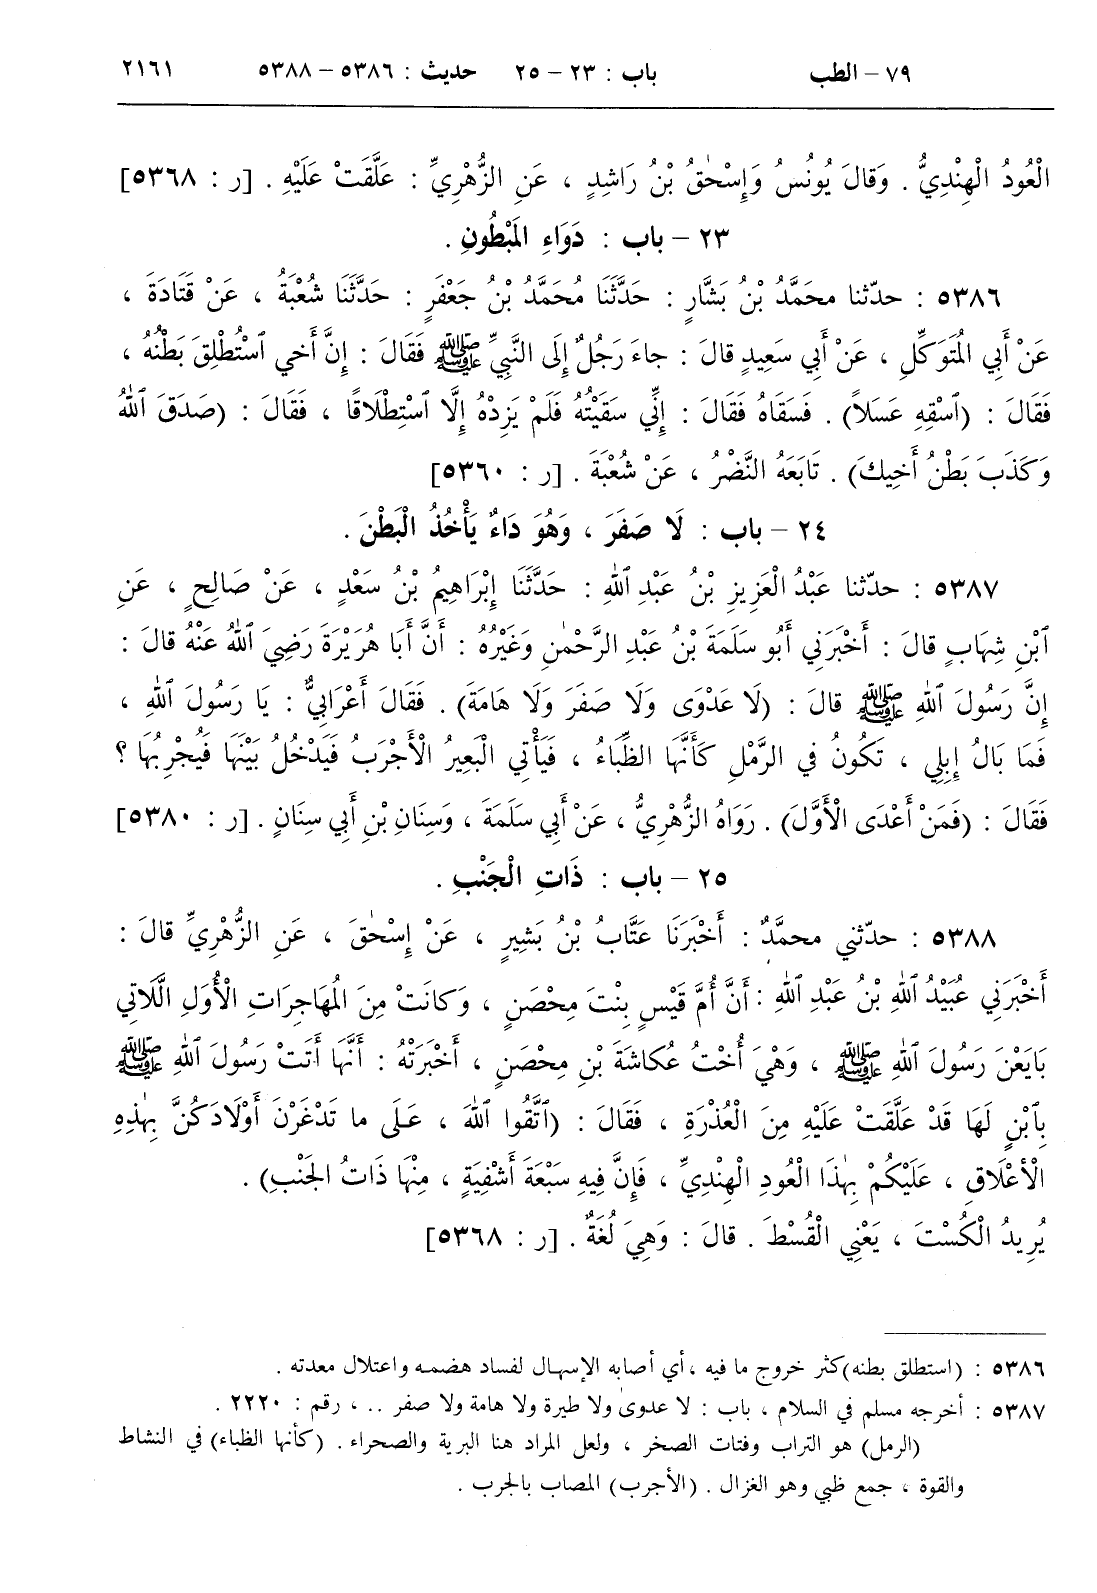 ٧٩ – الطب باب : ٢٣ – ٢٥ حديث : ٥٣٨٦ – ٥٣٨٨ ٢١٦١
الْعُودُ الْهِنْدِيُّ . وَقالَ يُونُسُ وَإِسْحٰقُ بْنُ رَاشِدٍ ، عَنِ الزُّهْرِيِّ : عَلَّقَتْ عَلَيْهِ . [ر : ٥٣٦٨]
٢٣ – باب : دَوَاءِ المَبْطُونِ .
٥٣٨٦ : حدّثنا محمَّدُ بْنُ بَشَّارٍ : حَدَّثَنَا مُحَمَّدُ بْنُ جَعْفَرٍ : حَدَّثَنَا شُعْبَةُ ، عَنْ قَتَادَةَ ،
عَنْ أَبِي المُتَوَكِّلِ ، عَنْ أَبِي سَعِيدٍ قالَ : جاءَ رَجُلٌ إِلَى النَّبِيِّ ﷺ فَقَالَ : إِنَّ أَخي ٱسْتُطْلِقَ بَطْنُهُ ،
فَقَالَ : (ٱسْقِهِ عَسَلاً) . فَسَقَاهُ فَقَالَ : إِنِّي سَقَيْتُهُ فَلَمْ يَزِدْهُ إِلَّا ٱسْتِطْلَاقًا ، فَقَالَ : (صَدَقَ ٱللهُ
وَكَذَبَ بَطْنُ أَخِيكَ) . تَابَعَهُ النَّضْرُ ، عَنْ شُعْبَةَ . [ر : ٥٣٦٠]
٢٤ – باب : لَا صَفَرَ ، وَهُوَ دَاءٌ يَأْخُذُ الْبَطْنَ .
٥٣٨٧ : حدّثنا عَبْدُ الْعَزِيزِ بْنُ عَبْدِ ٱللهِ : حَدَّثَنَا إِبْرَاهِيمُ بْنُ سَعْدٍ ، عَنْ صَالِحٍ ، عَنِ
ٱبْنِ شِهَابٍ قالَ : أَخْبَرَنِي أَبُو سَلَمَةَ بْنُ عَبْدِ الرَّحْمٰنِ وَغَيْرُهُ : أَنَّ أَبَا هُرَيْرَةَ رَضِيَ ٱللهُ عَنْهُ قالَ :
إِنَّ رَسُولَ ٱللهِ ﷺ قالَ : (لَا عَدْوَى وَلَا صَفَرَ وَلَا هامَةَ) . فَقَالَ أَعْرَابِيٌّ : يَا رَسُولَ ٱللهِ ،
فَمَا بَالُ إِبِلِي ، تَكُونُ في الرَّمْلِ كَأَنَّهَا الظِّبَاءُ ، فَيَأْتِي الْبَعِيرُ الْأَجْرَبُ فَيَدْخُلُ بَيْنَهَا فَيُجْرِبُهَا ؟
فَقَالَ : (فَمَنْ أَعْدَى الْأَوَّلَ) . رَوَاهُ الزُّهْرِيُّ ، عَنْ أَبِي سَلَمَةَ ، وَسِنَانِ بْنِ أَبِي سِنَانٍ . [ر : ٥٣٨٠]
٢٥ – باب : ذَاتِ الْجَنْبِ .
٥٣٨٨ : حدّثني محمَّدٌ : أَخْبَرَنَا عَتَّابُ بْنُ بَشِيرٍ ، عَنْ إِسْحٰقَ ، عَنِ الزُّهْرِيِّ قالَ :
أَخْبَرَنِي عُبَيْدُ ٱللهِ بْنُ عَبْدِ ٱللهِ : أَنَّ أُمَّ قَيْسٍ بِنْتَ مِحْصَنٍ ، وَكانَتْ مِنَ المُهَاجِرَاتِ الْأُوَلِ اللَّاتِي
بَايَعْنَ رَسُولَ ٱللهِ ﷺ ، وَهْيَ أُخْتُ عُكاشَةَ بْنِ مِحْصَنٍ ، أَخْبَرَتْهُ : أَنَّهَا أَتَتْ رَسُولَ ٱللهِ ﷺ
بِٱبْنٍ لَهَا قَدْ عَلَّقَتْ عَلَيْهِ مِنَ الْعُذْرَةِ ، فَقَالَ : (ٱتَّقُوا ٱللهَ ، عَلَى ما تَدْغَرْنَ أَوْلَادَكُنَّ بِهٰذِهِ
الْأَعْلَاقِ ، عَلَيْكُمْ بِهٰذَا الْعُودِ الْهِنْدِيِّ ، فَإِنَّ فِيهِ سَبْعَةَ أَشْفِيَةٍ ، مِنْهَا ذَاتُ الجَنْبِ) .
يُرِيدُ الْكُسْتَ ، يَعْنِي الْقُسْطَ . قالَ : وَهِيَ لُغَةٌ . [ر : ٥٣٦٨]
٥٣٨٦ : (استطلق بطنه)كثر خروج ما فيه ، أي أصابه الإسهال لفساد هضمه واعتلال معدته .
٥٣٨٧ : أخرجه مسلم في السلام ، باب : لا عدوى ولا طيرة ولا هامة ولا صفر .. ، رقم : ٢٢٢٠ .
(الرمل) هو التراب وفتات الصخر ، ولعل المراد هنا البرية والصحراء . (كأنها الظباء) في النشاط
والقوة ، جمع ظبي وهو الغزال . (الأجرب) المصاب بالجرب .